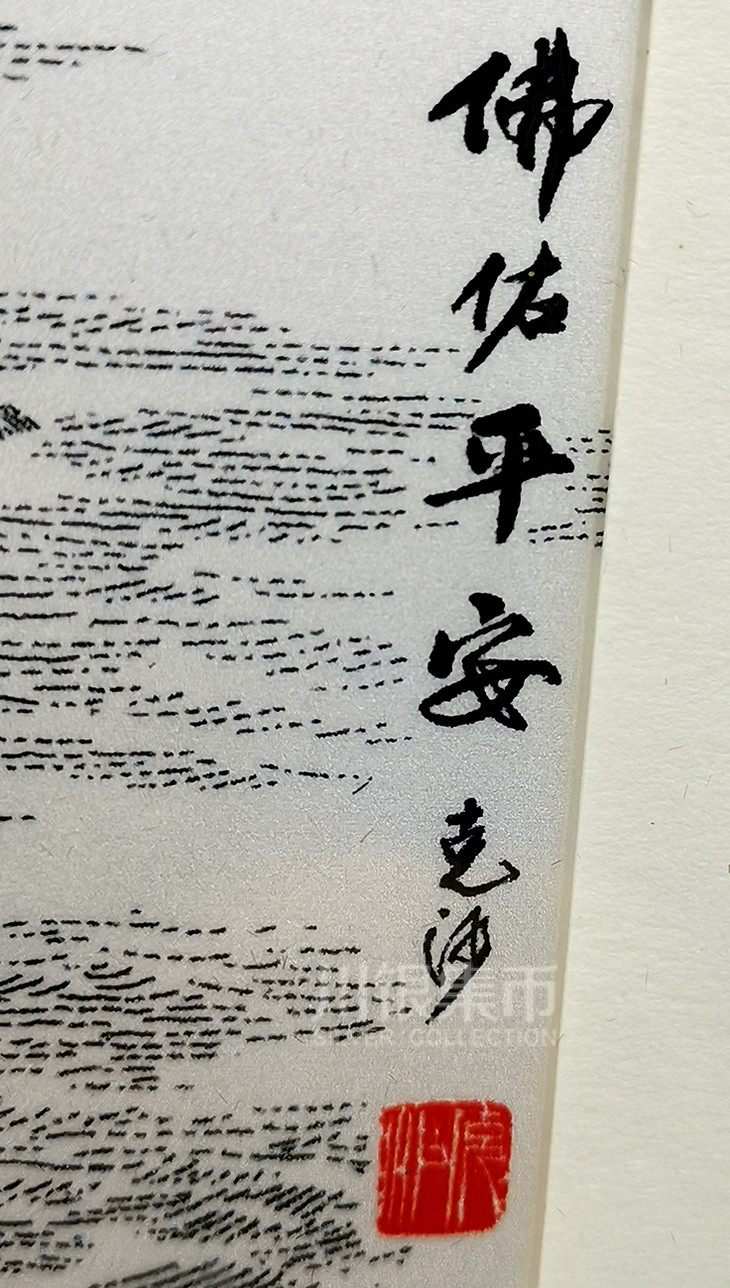 佛佑平安
克沙
银集币
SILVER COLLECTION